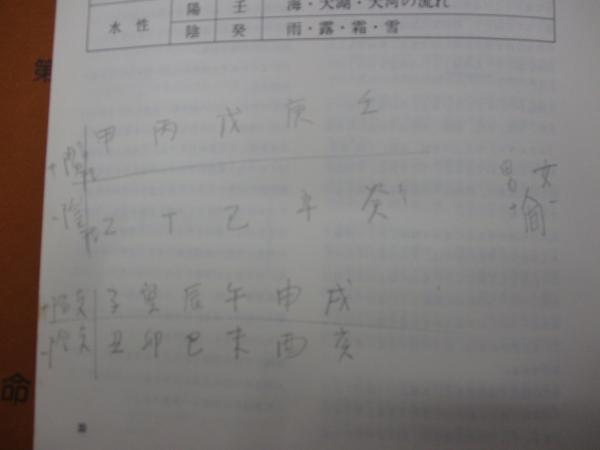 陽 壬 海・大湖・大河の流れ
水性
陰 癸 雨・露・霜・雪
第
+陽 甲 丙 戊 庚 壬
-陰 乙 丁 己 辛 癸
男 女
+ -
+陽支 子 寅 辰 午 申 戌
-陰支 丑 卯 巳 未 酉 亥
命